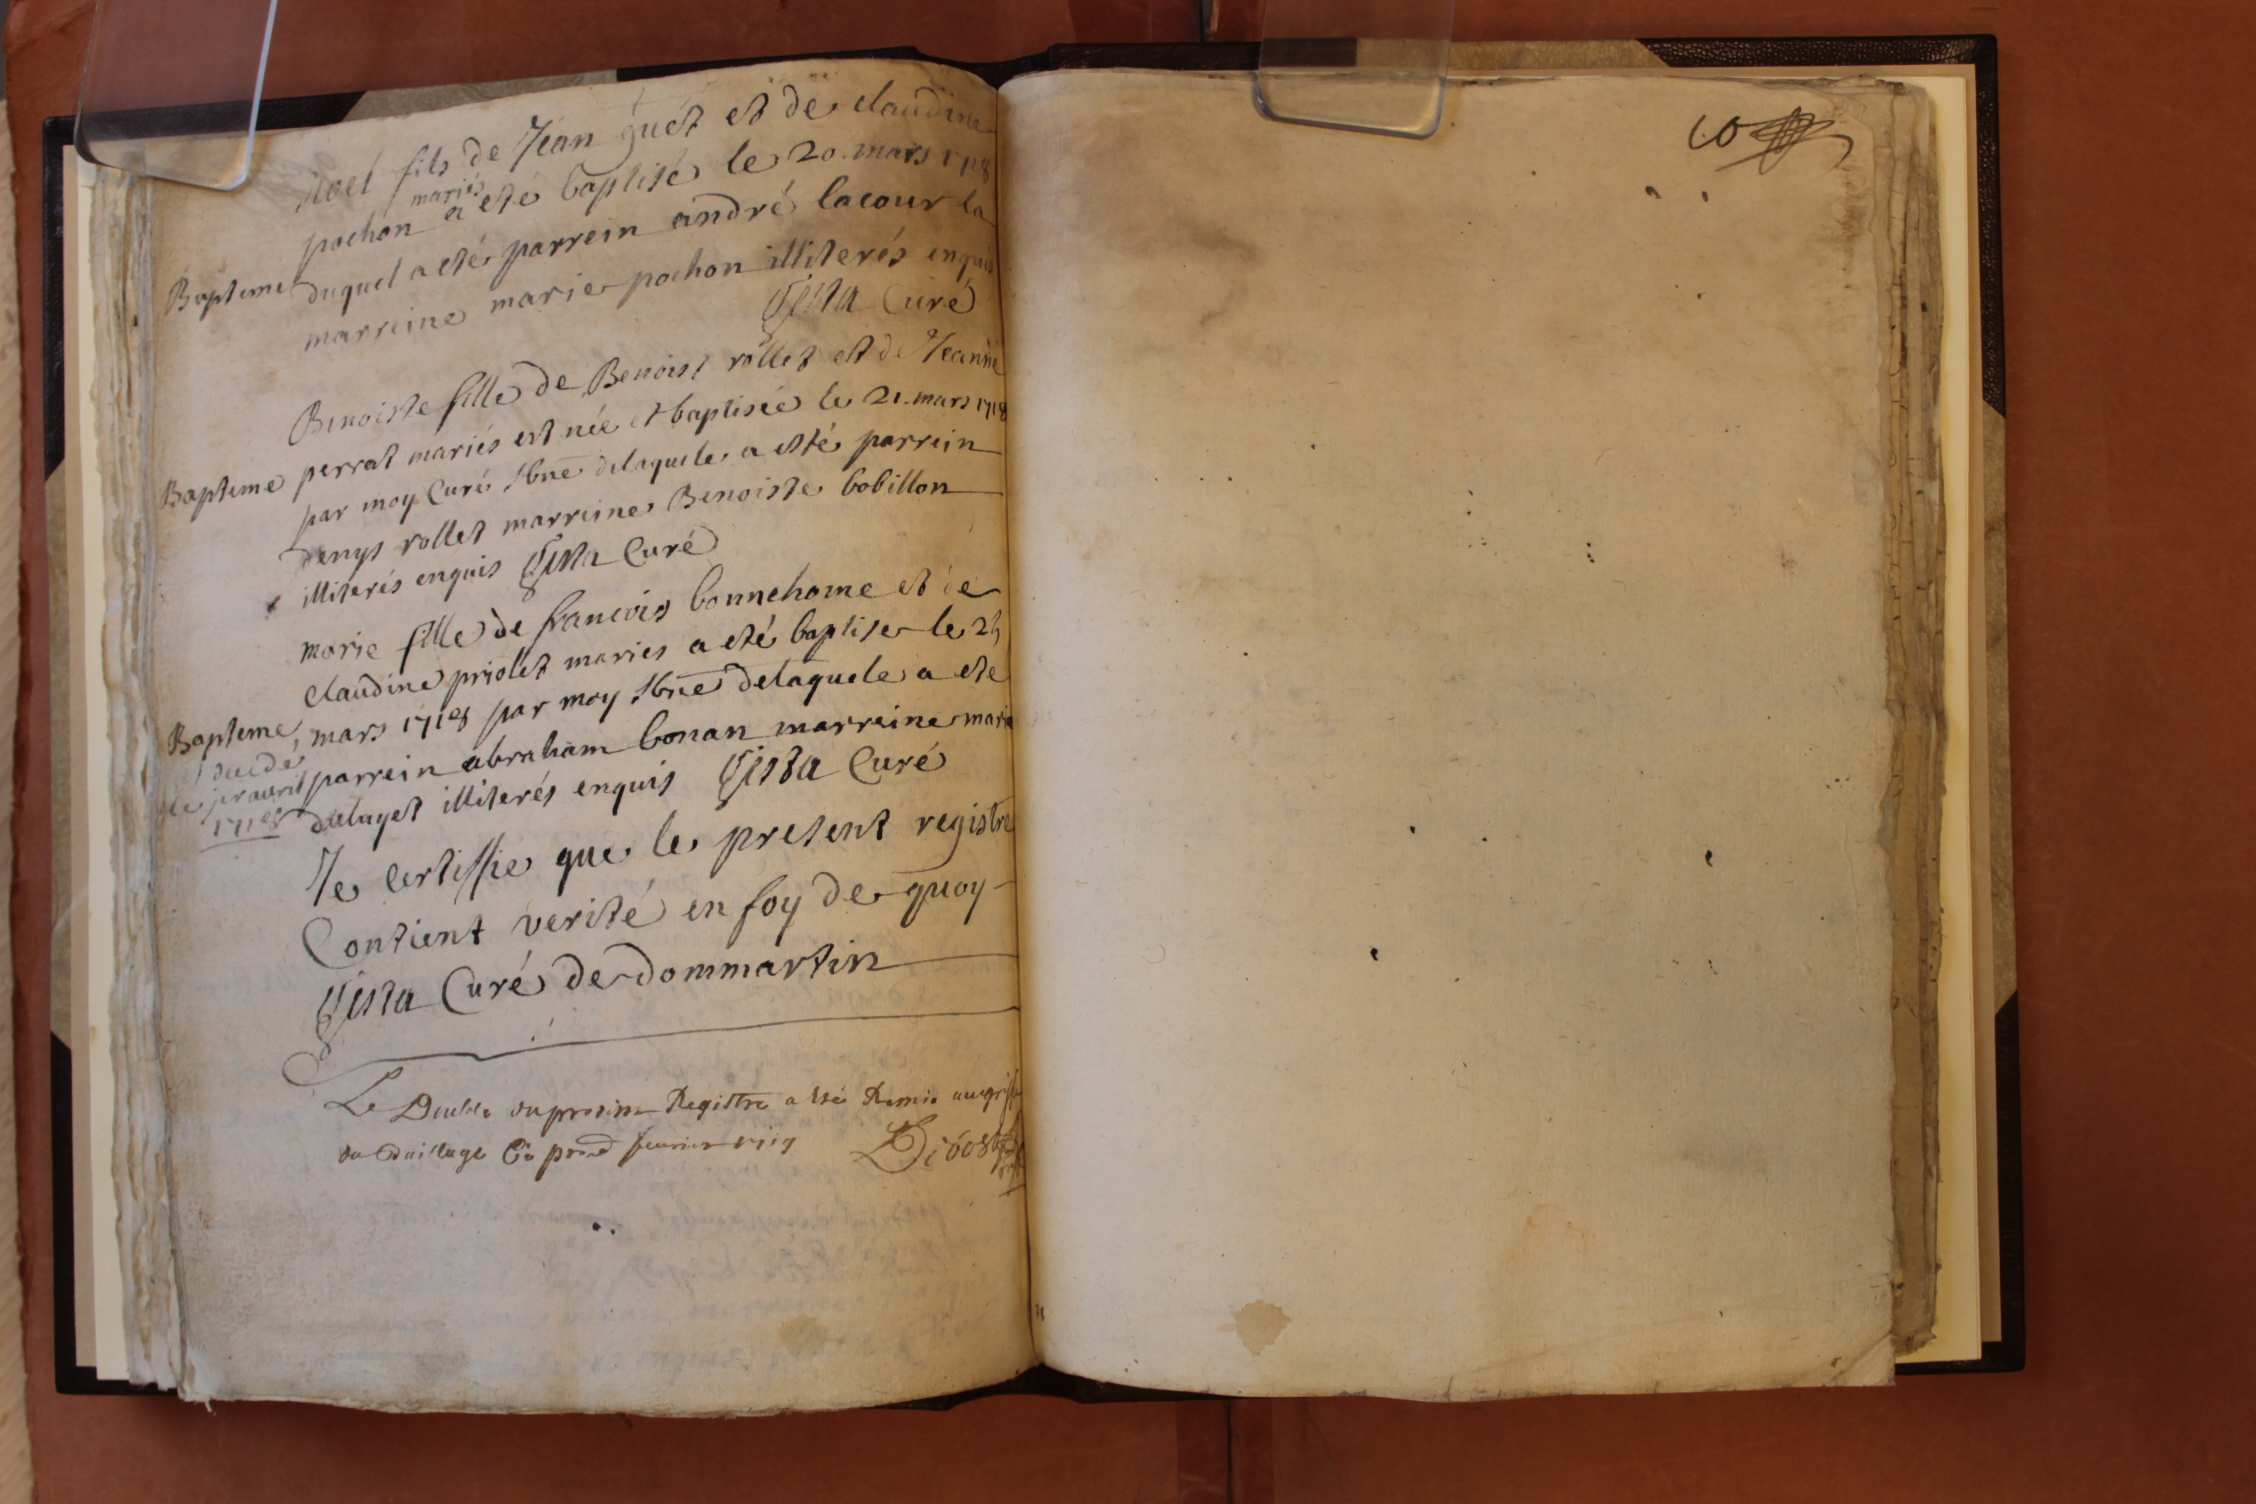 Noel fils de Jean guét et de claudine
mariés
pochon a eté baptisé le 20. mars 1718
Bapteme
duquel a eté parrein andré lacour la
marreine marie pochon illiterés enquis
Curé
Benoiste fille de Benoist rollet et de Jeanne
perrat mariés est née et baptisée le 21. mars 1718
Bapteme
par moy Curé sbné delaquele a esté parrein
denys rollet marreine Benoiste bobillon
illiterés enquis Curé
marie fille de francois bonnehome et de
claudine priolet maries a eté baptise le 25
Bapteme
mars 1718 par moy sbné delaquele a ete
parrein abraham bonan marreine marie
le jer avril
1718
illiterés enquis Curé
Je certiffie que le present registre
Contient verité en foy de quoy
Curé de dommartin
Le Double du presant Registre a Esté Remis au greffe
du Bailliage Ce fevrier 1719
10